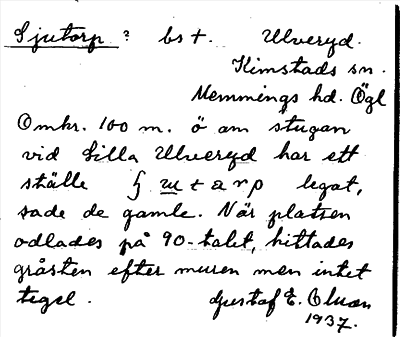 Sjutorp ? bst. Ulveryd.
Kimstads sn.
Memmings hd. Ögl
Omkr. 100 m. ö om stugan
vid Lilla Ulveryd har ett
ställe legat,
sade de gamle. När platsen
odlades på 90-talet, hittades
gråsten efter muren men intet
tegel. Gustaf E. Olson
1937.